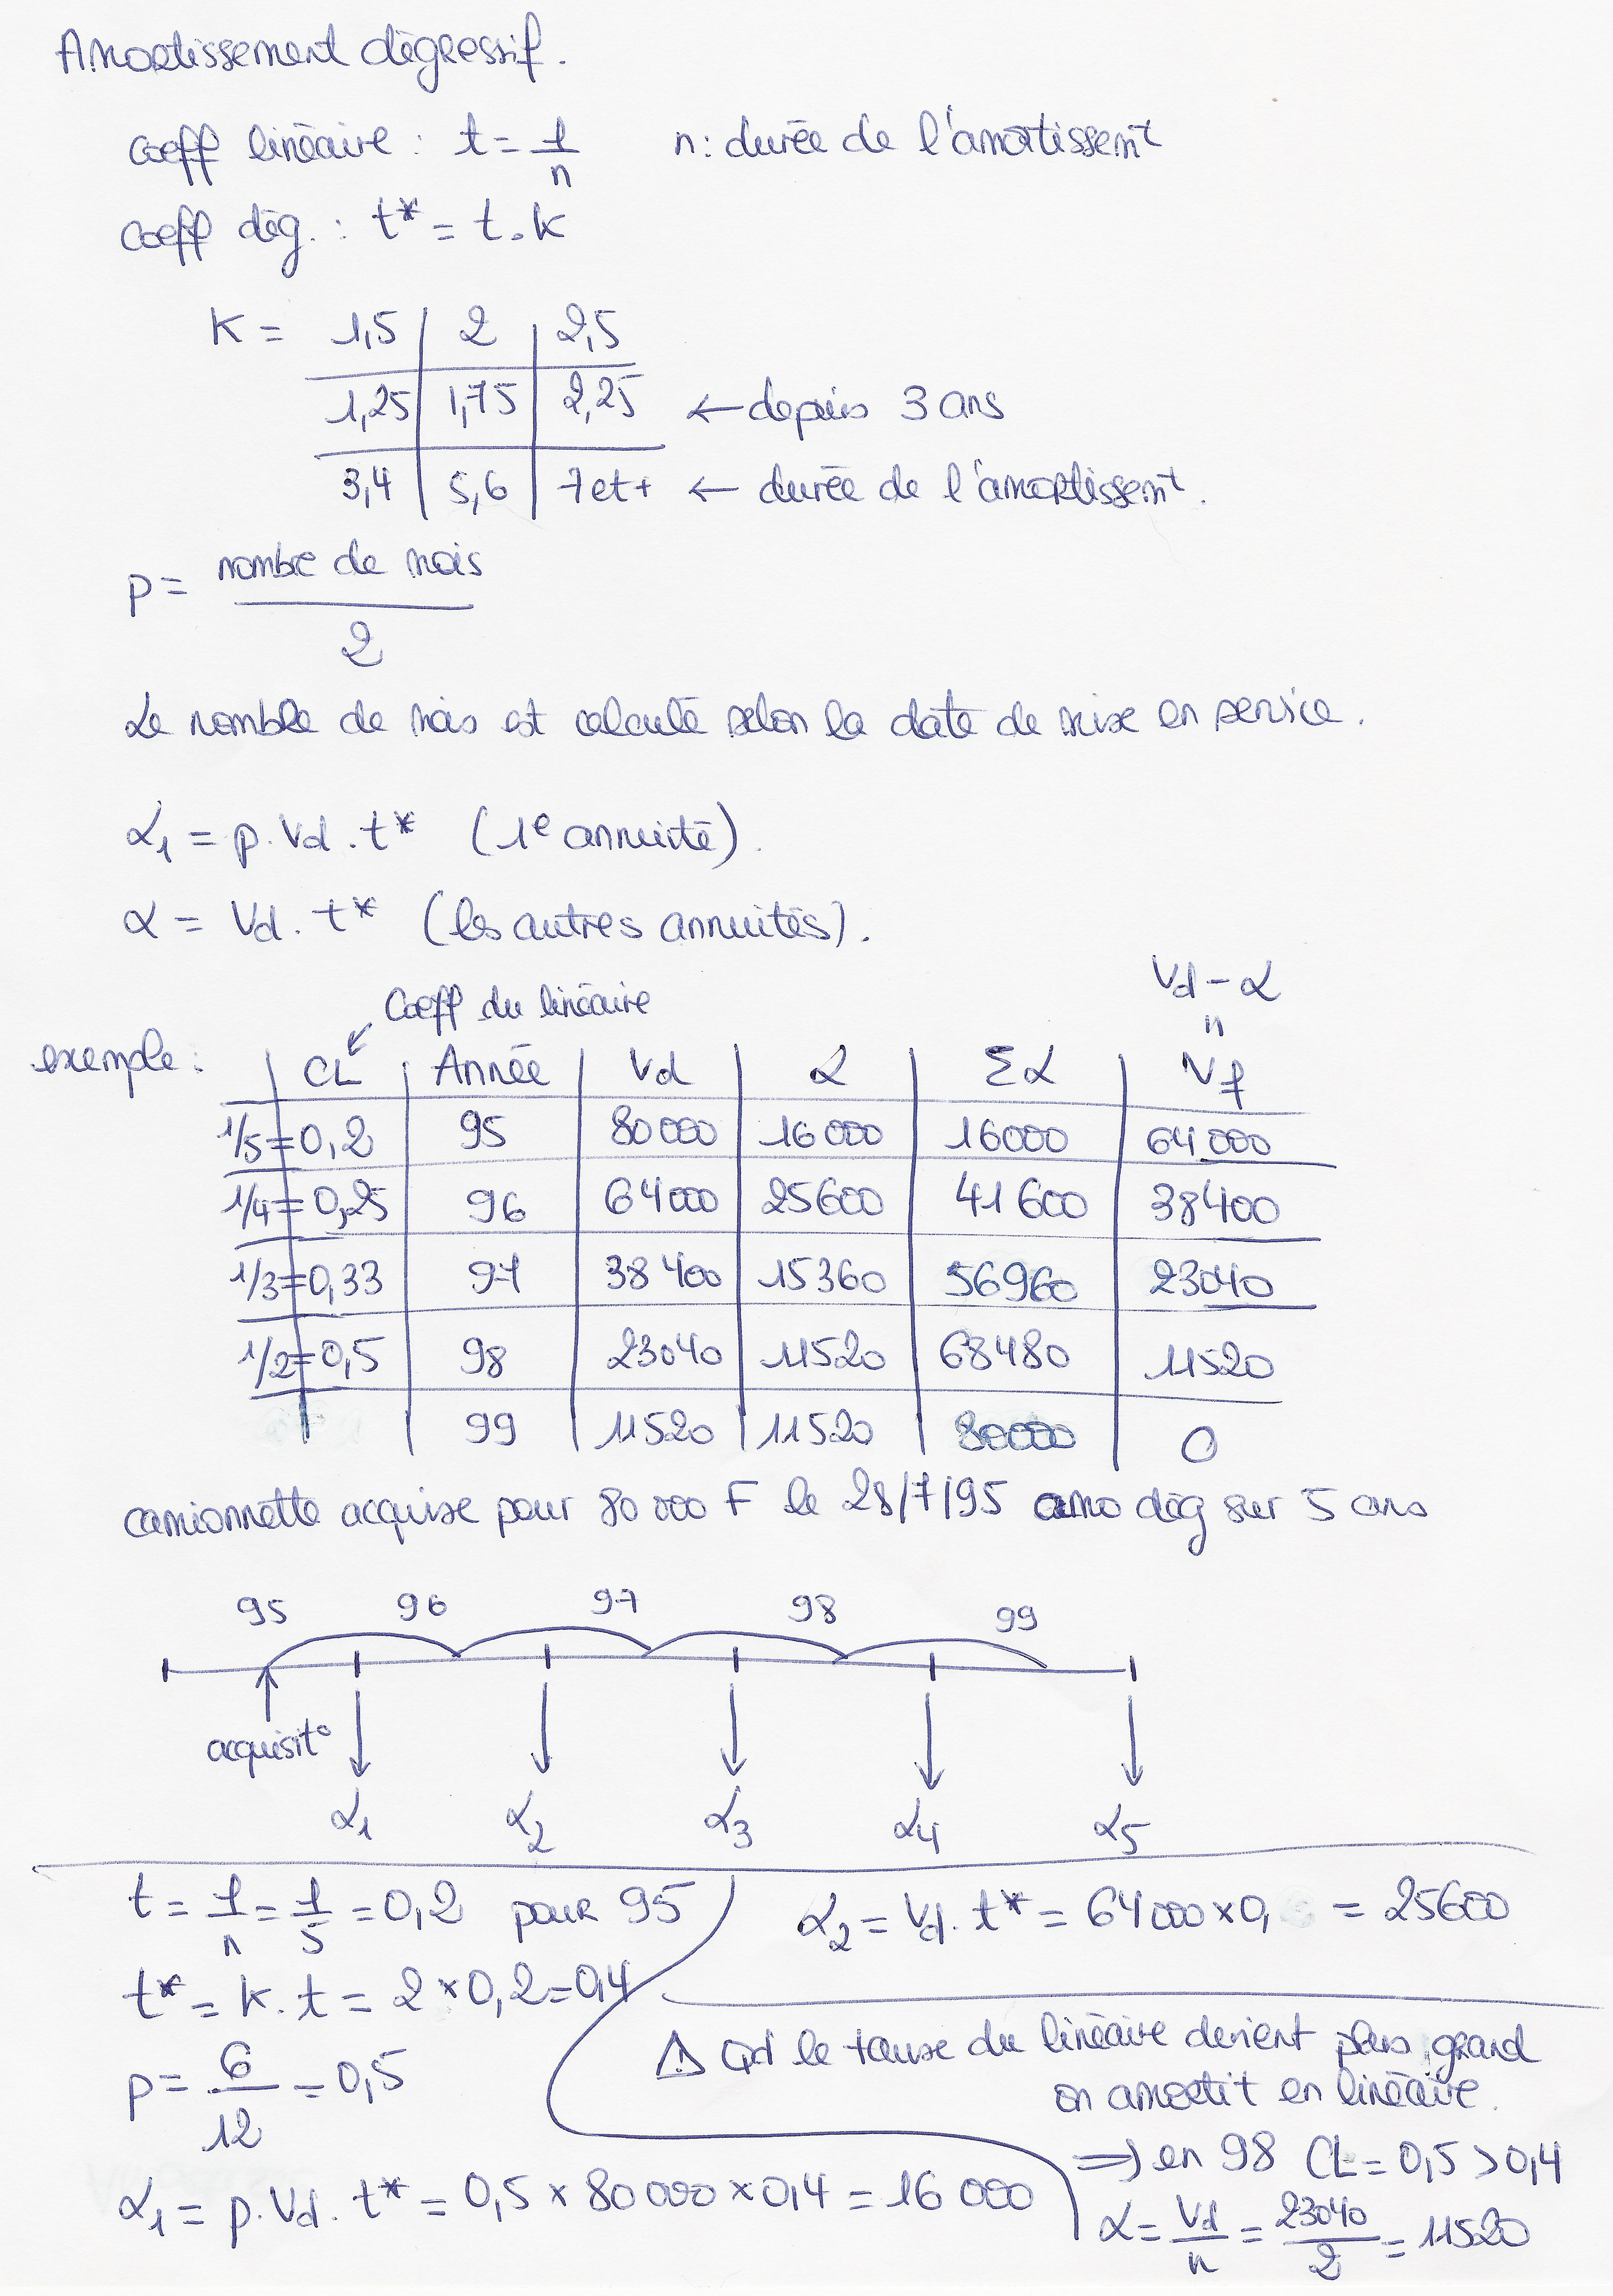 Amortissement dégressif.
coeff linéaire : t = 1/n n : durée de l'amortissemt
coeff dég. : t* = t . k
K = 1,5 | 2 | 2,5
1,25 | 1,75 | 2,25 ← depuis 3 ans
3,4 | 5,6 | 7 et + ← durée de l'amortissemt.
p = nombre de mois / 2
Le nombre de mois est calculé selon la date de mise en service.
α1 = p. Vd . t* (1e annuité).
α = Vd . t* (les autres annuités).
Vd - α
Coeff du linéaire
exemple : | CL | Année | Vd | α | Σα | Vf
1/5 = 0,2 | 95 | 80 000 | 16 000 | 16000 | 64 000
1/4 = 0,25 | 96 | 64 000 | 25600 | 41 600 | 38400
1/3 = 0,33 | 97 | 38 400 | 15360 | 56960 | 23040
1/2 = 0,5 | 98 | 23040 | 11520 | 68480 | 11520
99 | 11520 | 11520 | 80000 | 0
camionnette acquise pour 80 000 F le 28/7/95 amo dég sur 5 ans
95 96 97 98 99
acquisit°
α1 α2 α3 α4 α5
t = 1/n = 1/5 = 0,2 pour 95
t* = k . t = 2 × 0,2 = 0,4
p = 6/12 = 0,5
α1 = p. Vd . t* = 0,5 × 80 000 × 0,4 = 16 000
α2 = Vd . t* = 64 000 × 0, = 25600
⚠ Qd le taux du linéaire devient plus grand
on amortit en linéaire.
⇒ en 98 CL = 0,5 > 0,4
α = Vd/n = 23040/2 = 11520